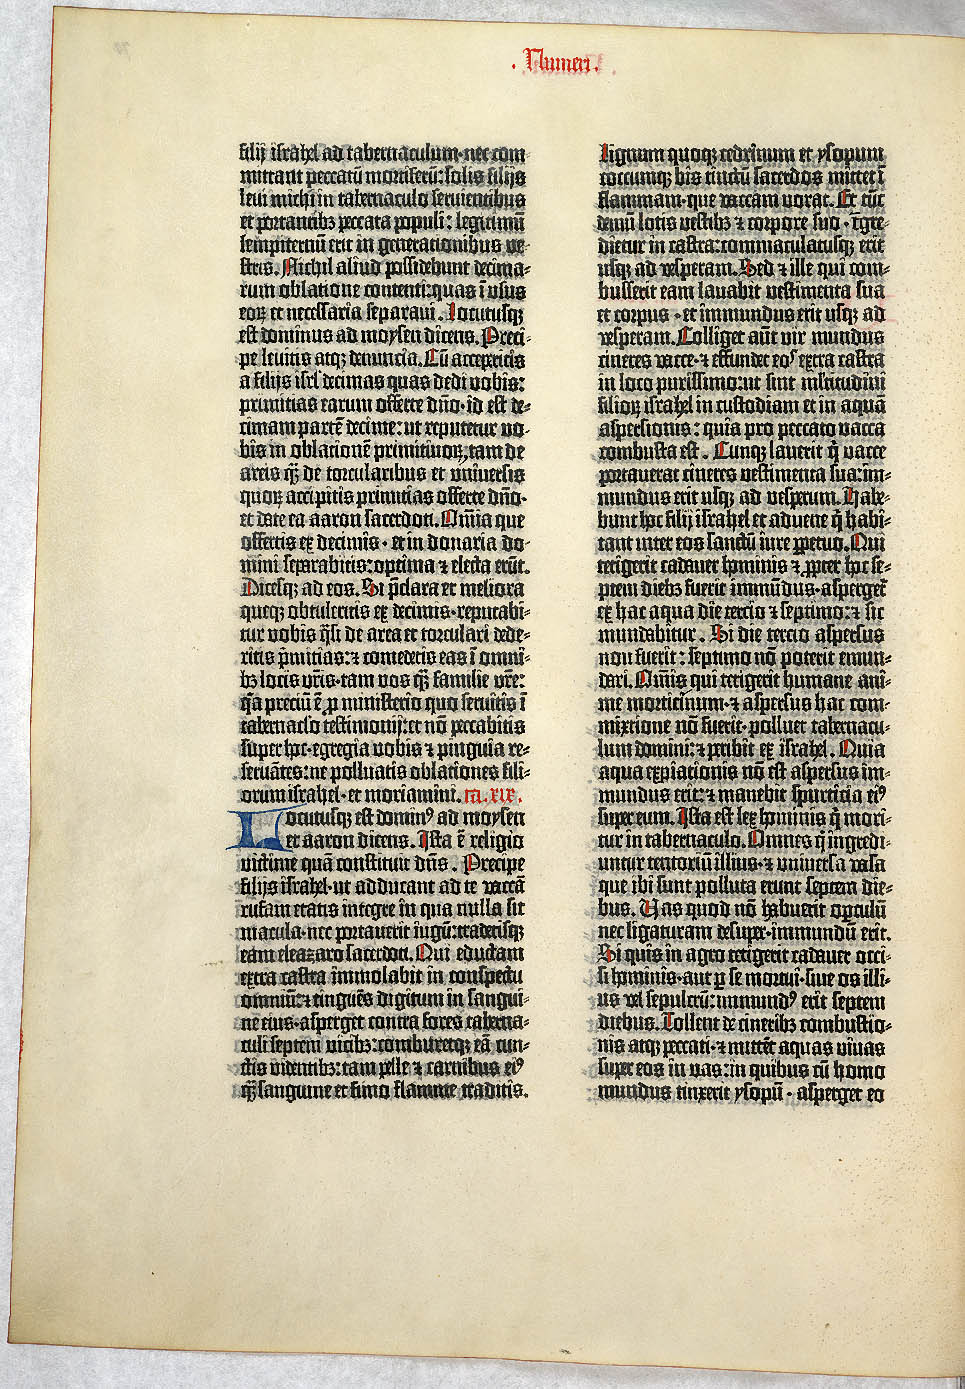 . Numeri .
filij israhel ad tabernaculum·nec com-
mittant peccatū mortiferū: solis filijs
leui michi in tabernaculo seruientibus
et portantibꝫ peccata populi: legitimū
sempiternū erit in generationibus ve-
stris. Nichil aliud possidebunt decima-
rum oblatione contenti: quas ī vsus
eoꝝ et necessaria separaui. Locutusqꝫ
est dominus ad moysen dicens. Preci-
pe leuitis atqꝫ denuncia. Cū acceperitis
a filijs isrl' decimas quas dedi vobis:
primitias earum offerte dño·id est de-
cimam partē decime: ut reputetur vo-
bis in oblationē primitiuoꝝ, tam de
areis qꝫ̄ de torcularibus et vniuersis
quoꝝ accipitis primitias offerte dño·
et date ea aaron sacerdoti. Om̄ia que
offertis ex decimis·et in donaria do-
mini separabitis: optima ⁊ electa erūt.
Dicesqꝫ ad eos. Si p̄clara et meliora
queqꝫ obtuleritis ex decimis·reputabi-
tur vobis q̄si de area et torculari dede-
ritis p̄mitias: ⁊ comedetis eas ī omni-
bꝫ locis vr̄is·tam vos qꝫ̄ familie vr̄e:
q̄a preciū ē ꝓ ministerio quo seruitis ī
tabernac̄lo testimonij: et nō peccabitis
super hoc·egregia vobis ⁊ pinguia re-
seruātes: ne polluatis oblationes fili-
orum israhel·et moriamini. ca. xix.
Locutusqꝫ est domin⁹ ad moysen
et aaron dicens. Ista ē religio
victime quā constituit dn̄s. Precipe
filijs israhel·ut adducant ad te vaccā
rufam etatis integre in qua nulla sit
macula·nec portauerit iugū: tradetisqꝫ
eam eleazaro sacerdoti. Qui eductam
extra castra immolabit in conspectu
omniū: ⁊ tinguēs digitum in sangui-
ne eius·asperget contra fores taberna-
culi septem vicibꝫ: comburetqꝫ eā cun-
ctis videntibꝫ: tam pelle ⁊ carnibus ei⁹
qꝫ̄ sanguine et fimo flamme traditis.
Lignum quoqꝫ cedrinum et ysopum
coccumqꝫ bis tinctū sacerdos mittet ī
flammam·que vaccam vorat. Et tūc
demū lotis vestibꝫ ⁊ corpore suo·īgre-
dietur in castra: commaculatusqꝫ erit
usqꝫ ad vesperam. Sed ⁊ ille qui com-
busserit eam lauabit vestimenta sua
et corpus·et immundus erit usqꝫ ad
vesperam. Colliget aūt vir mundus
cineres vacce·⁊ effundet eos extra castra
in loco purissimo: ut sint ml'titudini
filioꝝ israhel in custodiam et in aquā
aspersionis: quia pro peccato vacca
combusta est. Cunqꝫ lauerit q̄ vacce
portauerat cineres vestimenta sua: im-
mundus erit usqꝫ ad vesperum. Habe-
bunt hoc filij israhel et aduene q̄ habi-
tant inter eos sanctū iure ꝑpetuo. Qui
tetigerit cadauer hominis ⁊ ꝓpter hoc se-
ptem diebꝫ fuerit immūdus·aspergeť
ex hac aqua die tercio ⁊ septimo: ⁊ sic
mundabitur. Si die tercio aspersus
non fuerit: septimo nō poterit emun-
dari. Om̄is qui tetigerit humane ani-
me morticinum·⁊ aspersus hac com-
mixtione nō fuerit·polluet tabernacu-
lum domini: ⁊ peribit ex israhel. Quia
aqua expiationis nō est aspersus im-
mundus erit: ⁊ manebit spurcicia ei⁹
super eum. Ista est lex hominis q̄ mori-
tur in tabernaculo. Omnes q̄ ingredi-
untur tentoriū illius·⁊ vniuersa vasa
que ibi sunt polluta erunt septem die-
bus. Uas quod nō habuerit opculū
nec ligaturam desuper·immundū erit.
Si quis in agro tetigerit cadauer occi-
si hominis·aut ꝑ se mortui·siue os illi-
us vel sepulcrū: immund⁹ erit septem
diebus. Tollent de cineribꝫ combustio-
nis atqꝫ peccati·⁊ mittēt aquas viuas
super eos in vas: in quibus cū homo
mundus tinxerit ysopū·asperget eo